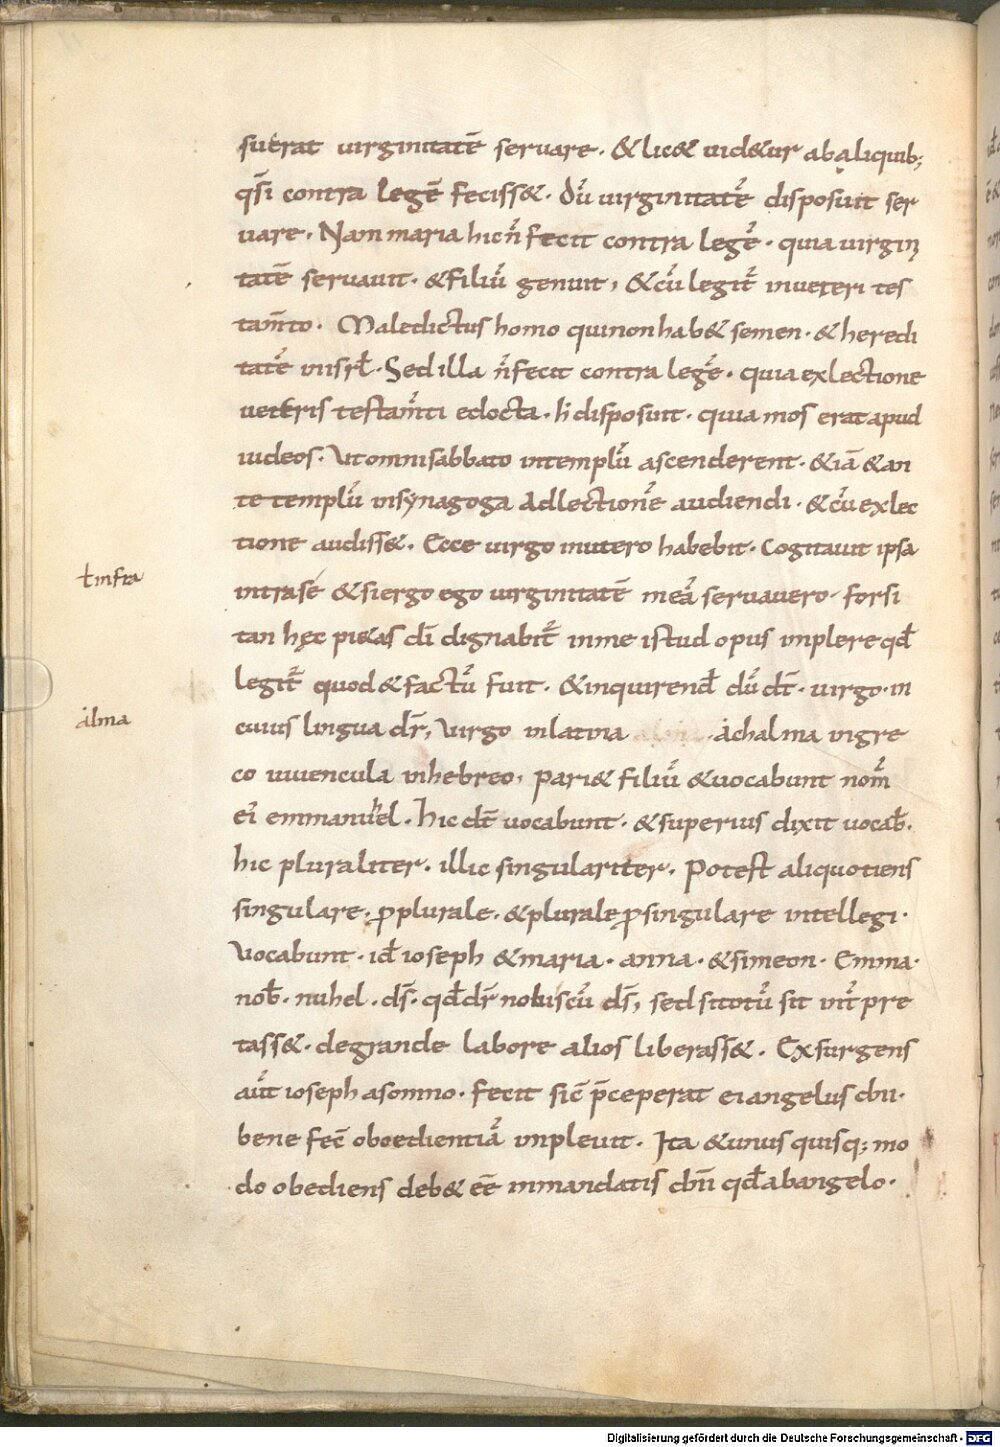 suerat uirginitatē seruare. & lic& uid&ur ab aliquib;
qs̄i contra legē feciss&. dū uirginitatē disposuit ser
uare. Nam maria hic n̄ fecit contra legē. quia uirgini
tatē seruauit. & filiū genuit, & cū legit̄ in ueteri tes
tam̄to. Maledictus homo qui non hab& semen. & heredi
tatē in isrł. Sed illa n̄ fecit contra legē. quia ex lectione
ueteris testam̄ti edocta. h̄ disposuit. quia mos erat apud
iudeos. Ut omni sabbato in templū ascenderent. & iā & an
te templū in synagoga ad lectionē audiendi. & cū ex lec
tione audiss&. Ecce uirgo in utero habebit. Cogitauit ipsa
ł infra
intra se & si ergo ego uirginitatē meā seruauero. forsi
tan hęc pi&as dī dignabit̄ in me istud opus implere qđ
legit̄ quod & factū fuit. & inquirenđ dū dt̄. uirgo. in
alma
cuius lingua dr̄, Virgo in latina . achalma in gre
co iuuencula in hebreo, pari& filiū & uocabunt nom̄
ei emmanuhel. hic dt̄ uocabunt. & superius dixit uocab̄.
hic pluraliter. illic singulariter. Potest aliquotiens
singulare. ꝓ plurale. & plurale ꝓ singulare intellegi.
Vocabunt. iđ ioseph & maria. anna. & simeon. Emma.
nob̄. nuhel. ds̄. qđ dr̄ nobiscū ds̄, sed si totū sit int̄pre
tass&. de grande labore alios liberass&. Exsurgens
aūt ioseph a somno. fecit sic̄ p̄ceperat ei angelus dn̄i.
bene fec̄ oboedientiā impleuit. Ita & unus quisq; mo
do obediens deb& eē in mandatis dn̄i qđ ab angelo.
Digitalisierung gefördert durch die Deutsche Forschungsgemeinschaft - DFG